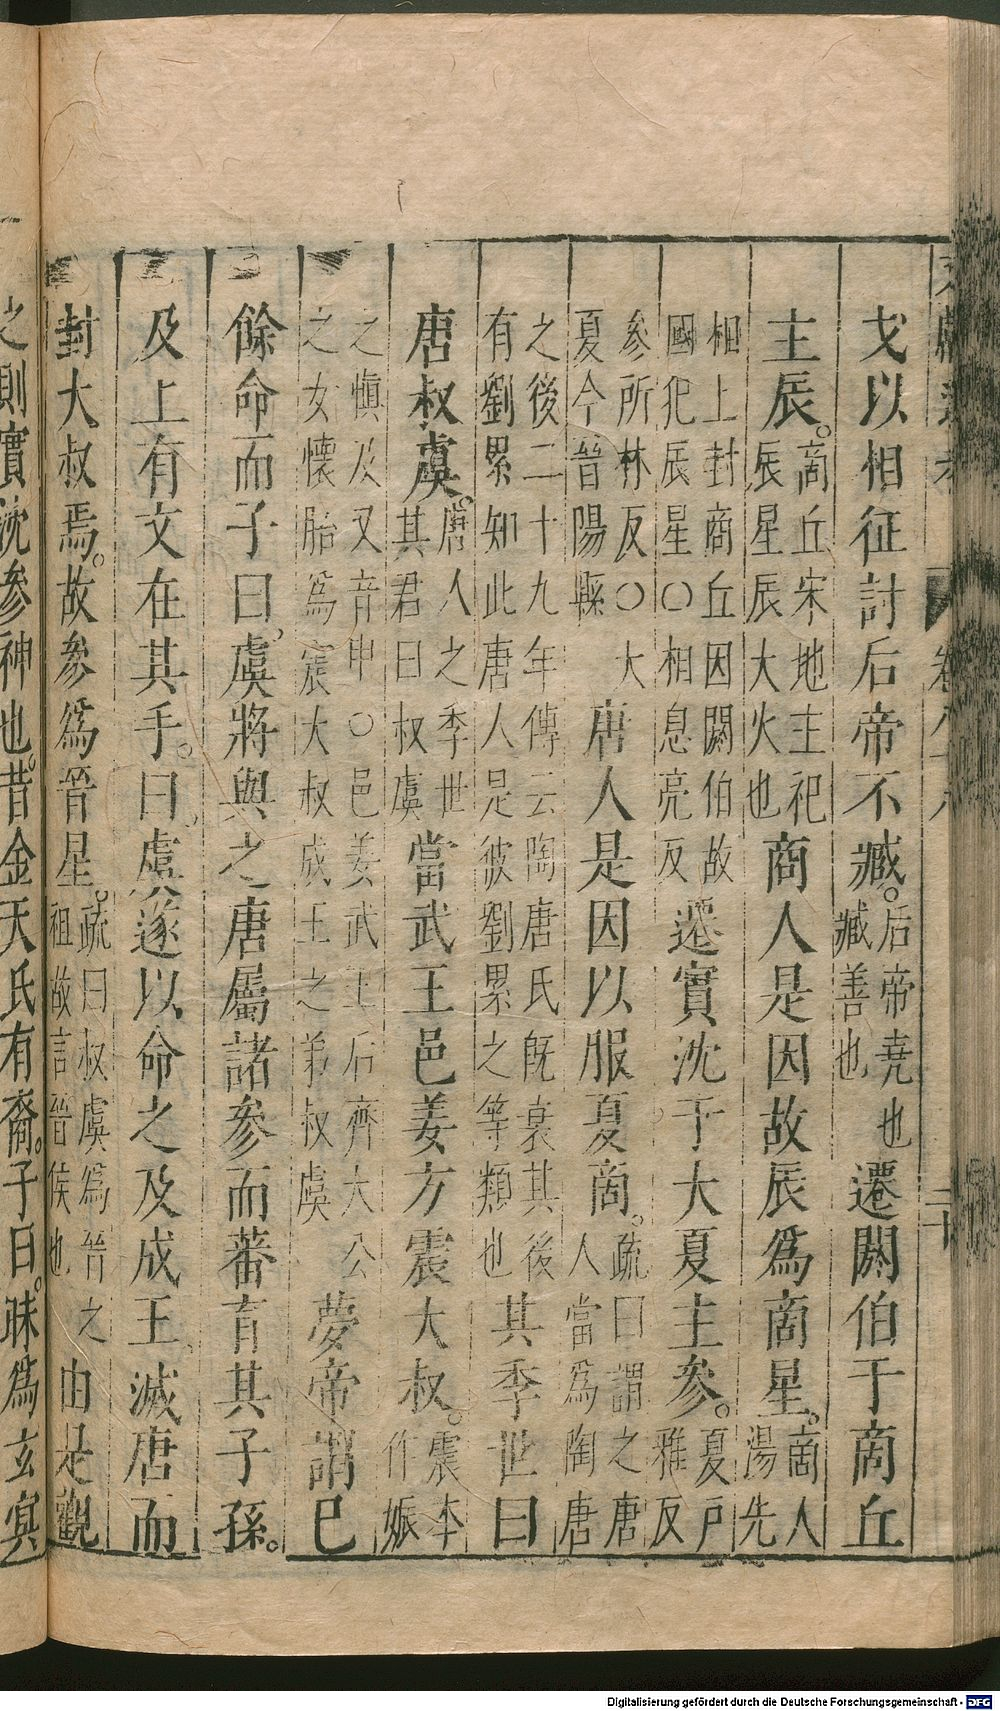 戈以相征討后帝不臧。后帝堯也臧善也遷閼伯于商丘
主辰。商丘宋地主祀辰星辰大火也商人是因故辰爲商星。商人湯先
相上封商丘因閼伯故國犯辰星○相息亮反遷實沈于大夏主參。夏戶雅反
參所林反○大夏今晉陽縣唐人是因以服夏商。疏曰謂之唐人當爲陶唐
之後二十九年傳云陶唐氏旣衰其後有劉累知此唐人是彼劉累之等類也其季世曰
唐叔虞。唐人之季世其君曰叔虞當武王邑姜方震大叔。震本作娠
之愼及又音申○邑姜武王后齊大公之女懷胎爲震大叔成王之弟叔虞夢帝謂已
餘命而子曰。虞將與之唐屬諸參而蕃育其子孫。
及上有文在其手。曰虞遂以命之及成王滅唐而
封大叔焉。故參爲晉星。疏曰叔虞爲晉之祖故言晉侯也由是觀
之則實沈參神也。昔金天氏有裔。子曰。昧爲玄冥
Digitalisierung gefördert durch die Deutsche Forschungsgemeinschaft - DFG